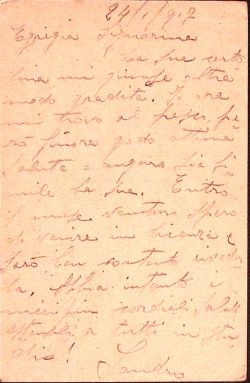 24/1/917
Egregia Signorina
La sua carto
lina mi giunse oltre
modo gradita. Io ora
mi trovo al pe però
finora godo ottima
salute e auguro sia si
mile la sua. Entro
il mese venturo spero
di venire in licenza e
sarò ben contento riveder
la. Abbia intanto i
miei più cordiali saluti
a tutti in stu
dio!
Sandro